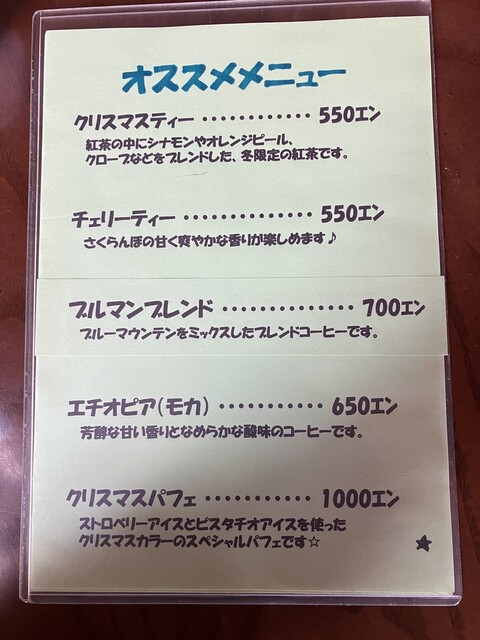 オススメメニュー
クリスマスティー ············ 550エン
紅茶の中にシナモンやオレンジピール、
クローブなどをブレンドした、冬限定の紅茶です。
チェリーティー ·············· 550エン
さくらんぼの甘く爽やかな香りが楽しめます♪
ブルマンブレンド ·············· 700エン
ブルーマウンテンをミックスしたブレンドコーヒーです。
エチオピア(モカ) ··········· 650エン
芳醇な甘い香りとなめらかな酸味のコーヒーです。
クリスマスパフェ ··········· 1000エン
ストロベリーアイスとピスタチオアイスを使った
クリスマスカラーのスペシャルパフェです☆
★